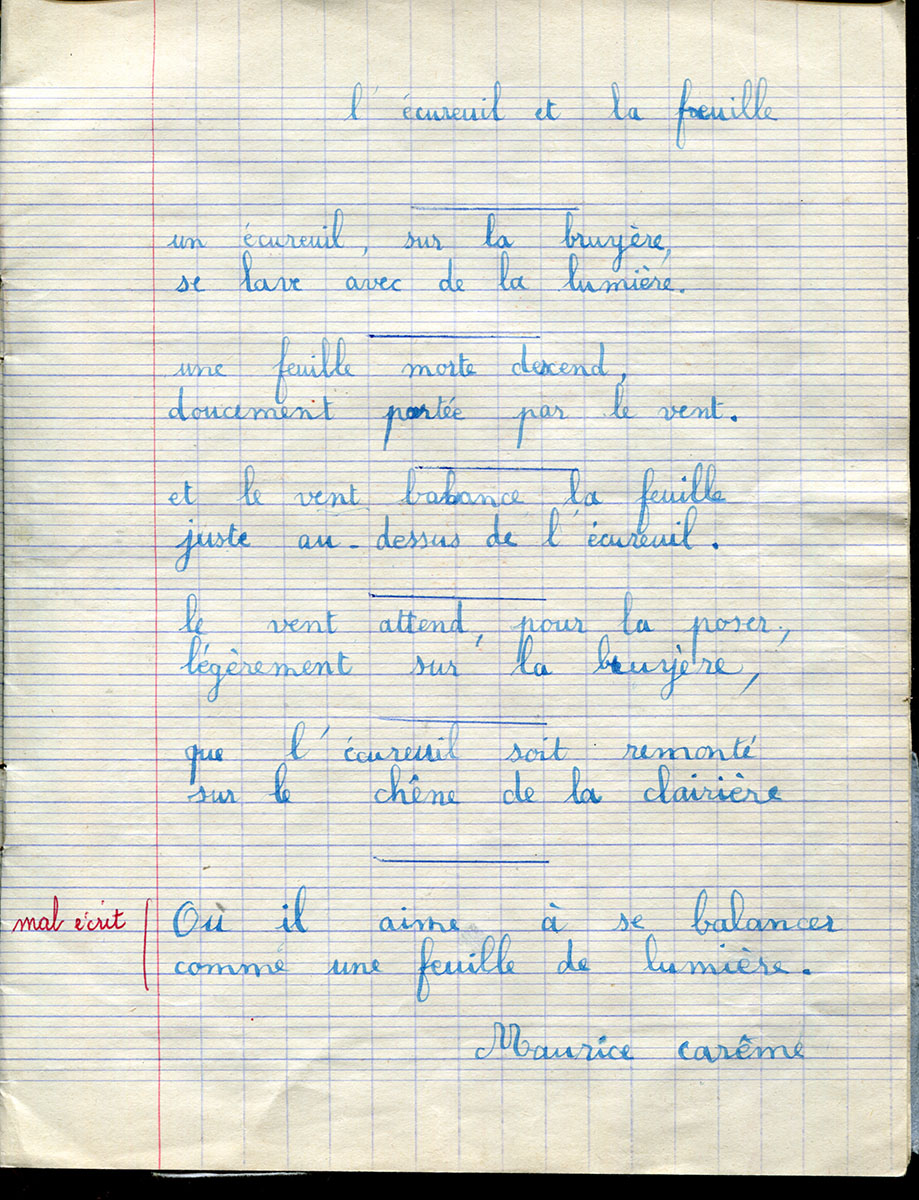 l'écureuil et la feuille
un écureuil, sur la bruyère,
se lave avec de la lumière.
une feuille morte descend,
doucement portée par le vent.
et le vent balance la feuille
juste au-dessus de l'écureuil.
le vent attend, pour la poser,
légèrement sur la bruyère,
que l'écureuil soit remonté
sur le chêne de la clairière
mal écrit
Où il aime à se balancer
comme une feuille de lumière.
Maurice carême